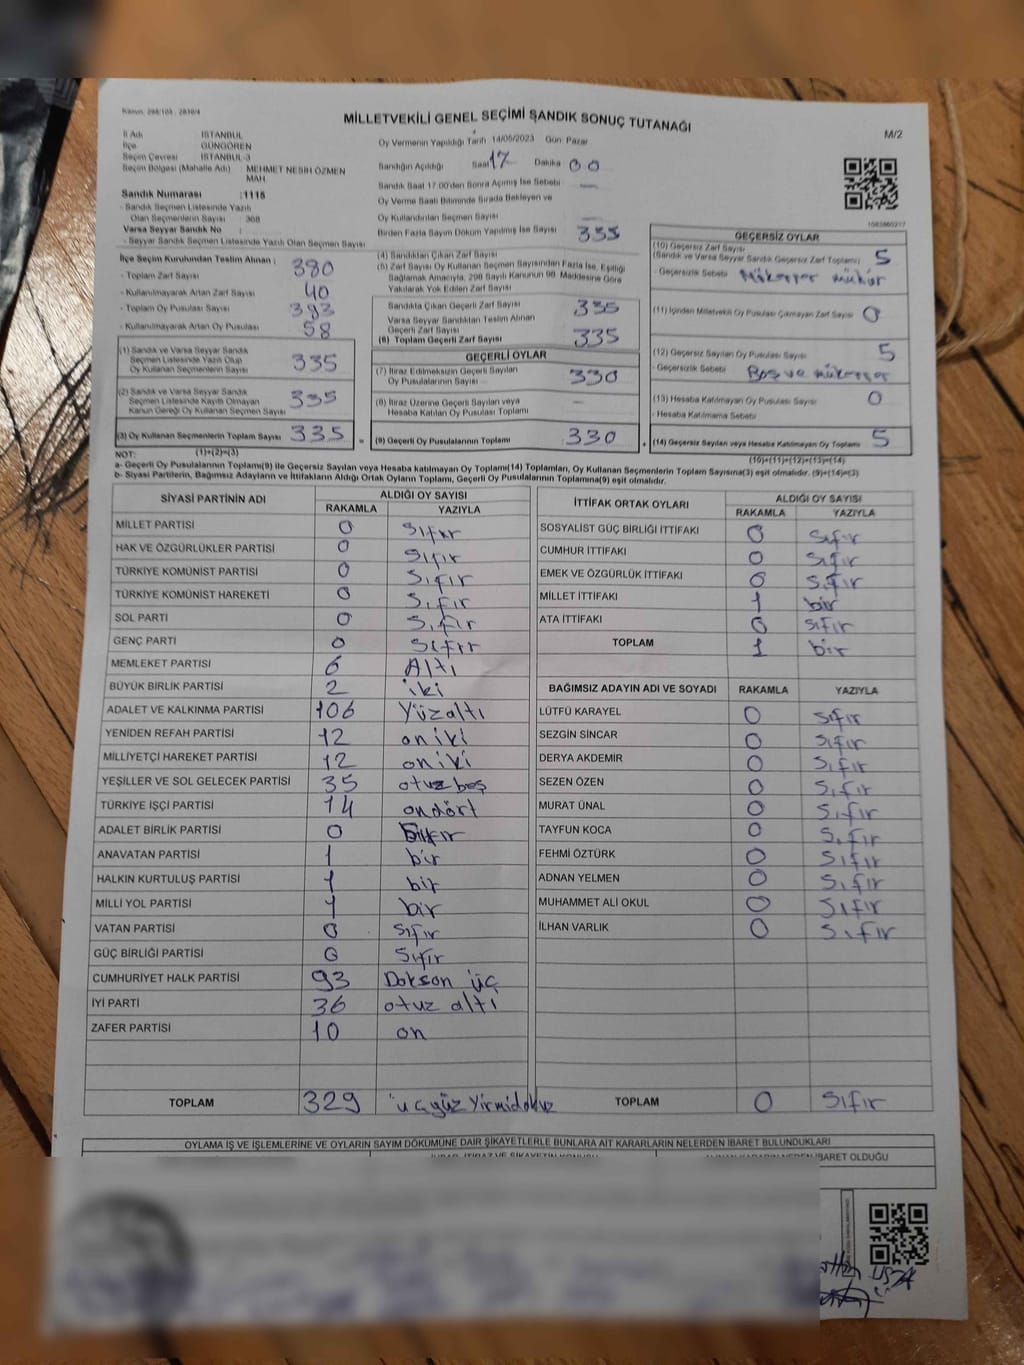 Kanun: 298/105 - 2839/4
MİLLETVEKİLİ GENEL SEÇİMİ SANDIK SONUÇ TUTANAĞI
M/2
İl Adı İSTANBUL
İlçe GÜNGÖREN
Seçim Çevresi İSTANBUL-3
Seçim Bölgesi (Mahalle Adı) MEHMET NESİH ÖZMEN MAH.
Sandık Numarası :1115
- Sandık Seçmen Listesinde Yazılı
Olan Seçmenlerin Sayısı : 368
Varsa Seyyar Sandık No :
- Seyyar Sandık Seçmen Listesinde Yazılı Olan Seçmen Sayısı
Oy Vermenin Yapıldığı Tarih 14/05/2023 Gün Pazar
Sandığın Açıldığı Saat 17 Dakika 00
Sandık Saat 17.00'den Sonra Açılmış İse Sebebi —
Oy Verme Saati Bitiminde Sırada Bekleyen ve
Oy Kullandırılan Seçmen Sayısı —
Birden Fazla Sayım Döküm Yapılmış İse Sayısı 335
İlçe Seçim Kurulundan Teslim Alınan ;
- Toplam Zarf Sayısı 380
- Kullanılmayarak Artan Zarf Sayısı 40
- Toplam Oy Pusulası Sayısı 393
- Kullanılmayarak Artan Oy Pusulası 58
(1) Sandık ve Varsa Seyyar Sandık
Seçmen Listesinde Yazılı Olup
Oy Kullanan Seçmenlerin Sayısı 335
(2) Sandık ve Varsa Seyyar Sandık
Seçmen Listesinde Kayıtlı Olmayan
Kanun Gereği Oy Kullanan Seçmen Sayısı 335
(3) Oy Kullanan Seçmenlerin Toplam Sayısı 335
(1)+(2)=(3)
(4) Sandıktan Çıkan Zarf Sayısı
(5) Zarf Sayısı Oy Kullanan Seçmen Sayısından Fazla İse, Eşitliği
Sağlamak Amacıyla, 298 Sayılı Kanunun 98. Maddesine Göre
Yakılarak Yok Edilen Zarf Sayısı
Sandıkta Çıkan Geçerli Zarf Sayısı 335
Varsa Seyyar Sandıktan Teslim Alınan
Geçerli Zarf Sayısı
(6) Toplam Geçerli Zarf Sayısı 335
GEÇERLİ OYLAR
(7) İtiraz Edilmeksizin Geçerli Sayılan
Oy Pusulalarının Sayısı 330
(8) İtiraz Üzerine Geçerli Sayılan veya
Hesaba Katılan Oy Pusulası Toplamı —
= (9) Geçerli Oy Pusulalarının Toplamı 330
GEÇERSİZ OYLAR
(10) Geçersiz Zarf Sayısı
(Sandık ve Varsa Seyyar Sandık Geçersiz Zarf Toplamı) 5
- Geçersizlik Sebebi Mükerrer mühür
(11) İçinden Milletvekili Oy Pusulası Çıkmayan Zarf Sayısı 0
(12) Geçersiz Sayılan Oy Pusulası Sayısı 5
- Geçersizlik Sebebi Boş ve mükerrer
(13) Hesaba Katılmayan Oy Pusulası Sayısı 0
- Hesaba Katılmama Sebebi
+ (14) Geçersiz Sayılan veya Hesaba Katılmayan Oy Toplamı 5
(10)+(11)+(12)+(13)=(14)
NOT:
a- Geçerli Oy Pusulalarının Toplamı(9) ile Geçersiz Sayılan veya Hesaba katılmayan Oy Toplamı(14) Toplamları, Oy Kullanan Seçmenlerin Toplam Sayısına(3) eşit olmalıdır. (9)+(14)=(3)
b- Siyasi Partilerin, Bağımsız Adayların ve İttifakların Aldığı Ortak Oyların Toplamı, Geçerli Oy Pusulalarının Toplamına(9) eşit olmalıdır.
SİYASİ PARTİNİN ADI ALDIĞI OY SAYISI
RAKAMLA YAZIYLA
MİLLET PARTİSİ 0 sıfır
HAK VE ÖZGÜRLÜKLER PARTİSİ 0 sıfır
TÜRKİYE KOMÜNİST PARTİSİ 0 sıfır
TÜRKİYE KOMÜNİST HAREKETİ 0 sıfır
SOL PARTİ 0 sıfır
GENÇ PARTİ 0 sıfır
MEMLEKET PARTİSİ 6 Altı
BÜYÜK BİRLİK PARTİSİ 2 iki
ADALET VE KALKINMA PARTİSİ 106 Yüzaltı
YENİDEN REFAH PARTİSİ 12 oniki
MİLLİYETÇİ HAREKET PARTİSİ 12 oniki
YEŞİLLER VE SOL GELECEK PARTİSİ 35 otuz beş
TÜRKİYE İŞÇİ PARTİSİ 14 ondört
ADALET BİRLİK PARTİSİ 0 sıfır
ANAVATAN PARTİSİ 1 bir
HALKIN KURTULUŞ PARTİSİ 1 bir
MİLLİ YOL PARTİSİ 1 bir
VATAN PARTİSİ 0 sıfır
GÜÇ BİRLİĞİ PARTİSİ 0 sıfır
CUMHURİYET HALK PARTİSİ 93 Dokson üç
İYİ PARTİ 36 otuz altı
ZAFER PARTİSİ 10 on
TOPLAM 329 üçyüz Yirmidokuz
İTTİFAK ORTAK OYLARI ALDIĞI OY SAYISI
RAKAMLA YAZIYLA
SOSYALİST GÜÇ BİRLİĞİ İTTİFAKI 0 sıfır
CUMHUR İTTİFAKI 0 sıfır
EMEK VE ÖZGÜRLÜK İTTİFAKI 0 sıfır
MİLLET İTTİFAKI 1 bir
ATA İTTİFAKI 0 sıfır
TOPLAM 1 bir
BAĞIMSIZ ADAYIN ADI VE SOYADI RAKAMLA YAZIYLA
LÜTFÜ KARAYEL 0 sıfır
SEZGİN SİNCAR 0 sıfır
DERYA AKDEMİR 0 sıfır
SEZEN ÖZEN 0 sıfır
MURAT ÜNAL 0 sıfır
TAYFUN KOCA 0 sıfır
FEHMİ ÖZTÜRK 0 sıfır
ADNAN YELMEN 0 sıfır
MUHAMMET ALİ OKUL 0 sıfır
İLHAN VARLIK 0 sıfır
TOPLAM 0 sıfır
OYLAMA İŞ VE İŞLEMLERİNE VE OYLARIN SAYIM DÖKÜMÜNE DAİR ŞİKAYETLERLE BUNLARA AİT KARARLARIN NELERDEN İBARET BULUNDUKLARI
İBARET OLDUĞU